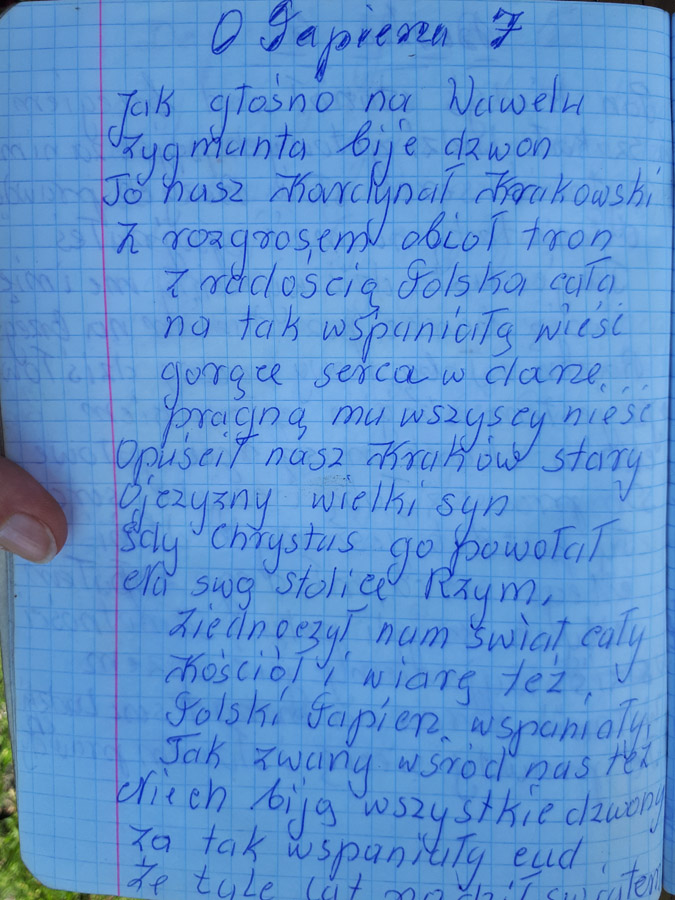 O Papieżu 7
Jak głośno na Wawelu
Zygmunta bije dzwon
To nasz Kardynał Krakowski
Z rozgrosem obioł tron
z radością Polska cała
na tak wspaniałą wieść
gorące serca w darze
pragną mu wszyscy nieść
Opuścił nasz Kraków stary
Ojczyzny wielki syn
Gdy Chrystus go powołał
Na swą stolice Rzym,
ziednoczył nam świat cały
Kościół i wiarę też,
Polski Papież wspaniały,
Tak zwany wśród nas też
Niech biją wszystkie dzwony
Za tak wspaniały cud
Że tyle lat rządził światem